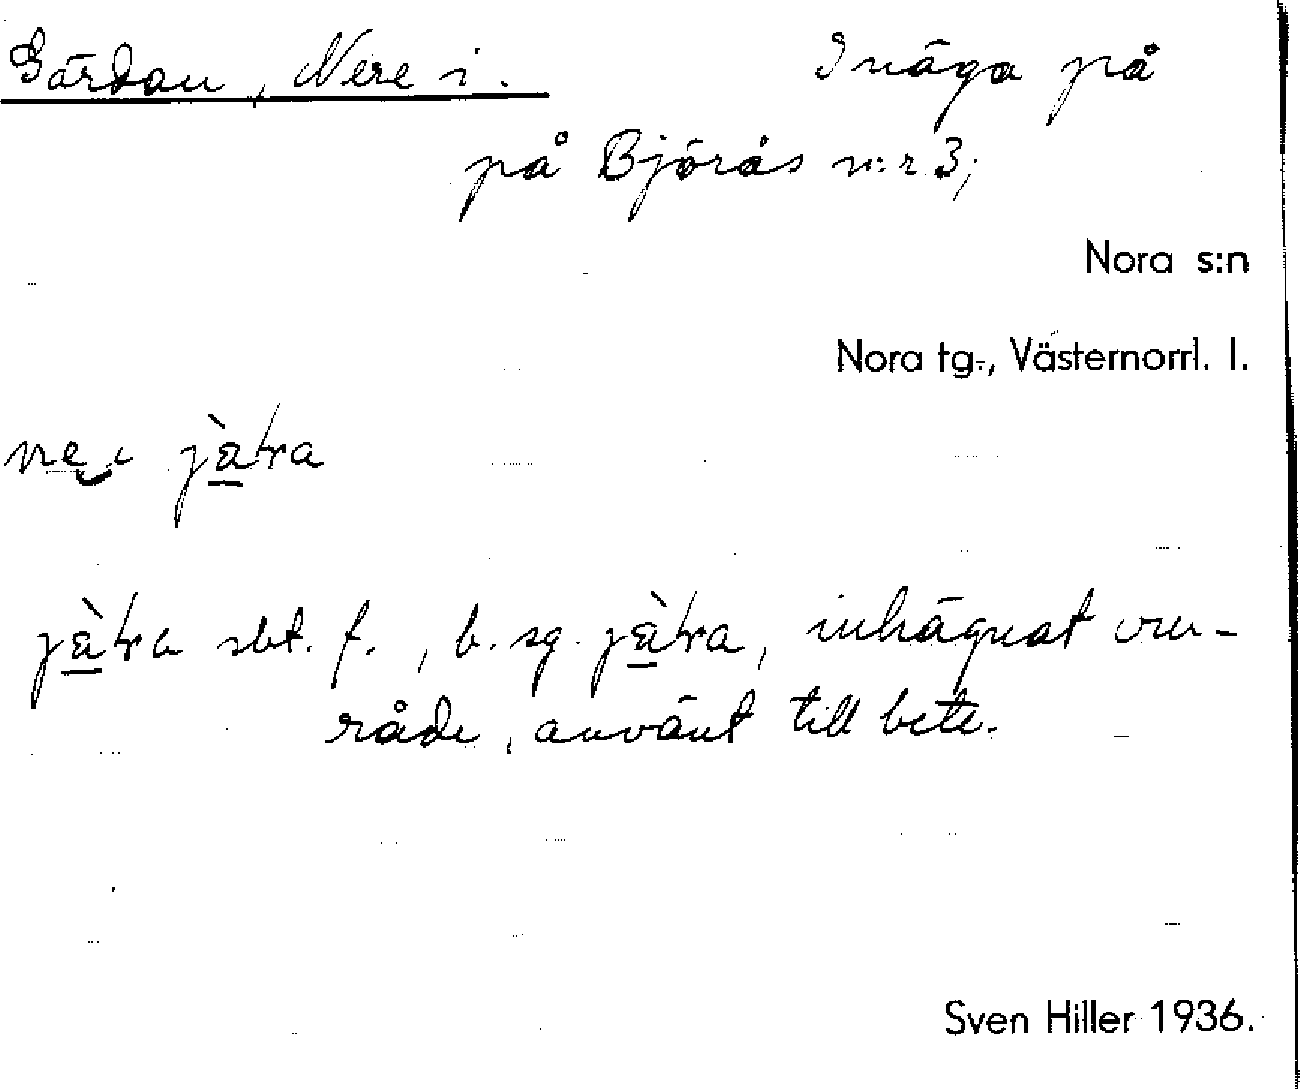 Gärdan, Nere i. Inäga på
på Björås n:r 3;
Nora s:n
Nora tg., Västernorrl. l.
sbt. f., b. sg. inhägnat om-
råde, använt till bete.
Sven Hiller 1936.